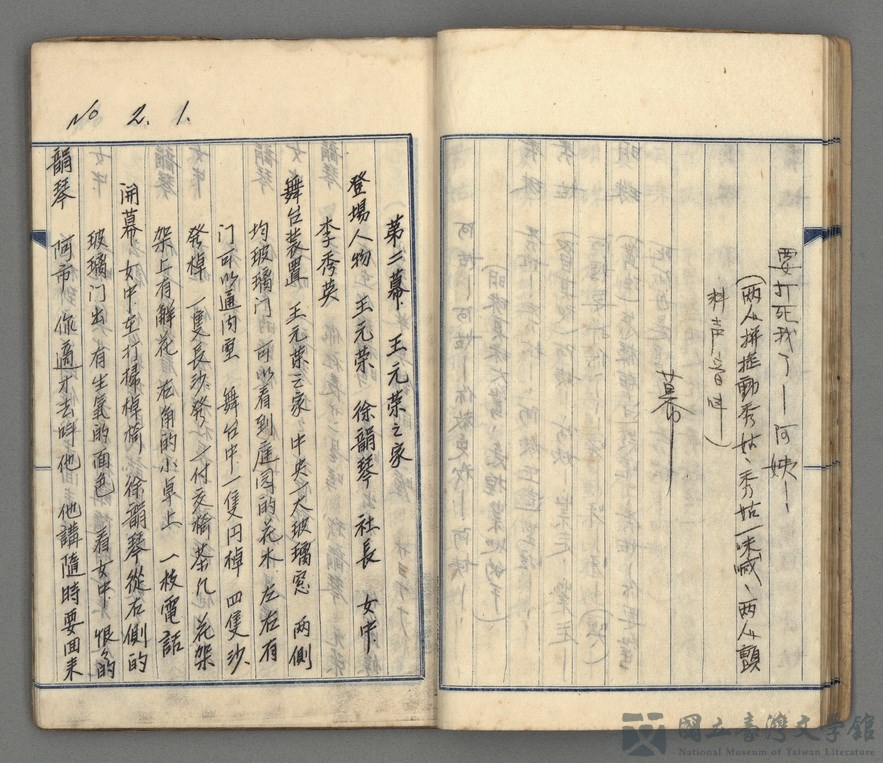 要打死我了—阿姨—
(両人拼推動秀姑、秀姑一味喊、両人顫
抖声音叫)
幕
No 2. 1.
第二幕 王元荣之家
登場人物 王元荣 徐韻琴 社長 女中
李秀英
舞台装置 王元荣之家 中央一大玻璃窓 両側
均玻璃门 可以看到庭園的花木 左右有
门可以通内室 舞台中一隻円棹 四隻沙
発棹 一隻長沙発 一付交椅茶几 花架
架上有鮮花 右角的小卓上 一枝電話
開幕 女中在打掃棹椅 徐韻琴從右側的
玻璃门出 有生氣的面色 看女中 恨々的
韻琴 阿市 你適才去呼他 他講隨時要回来
國立臺灣文學館
National Museum of Taiwan Literature